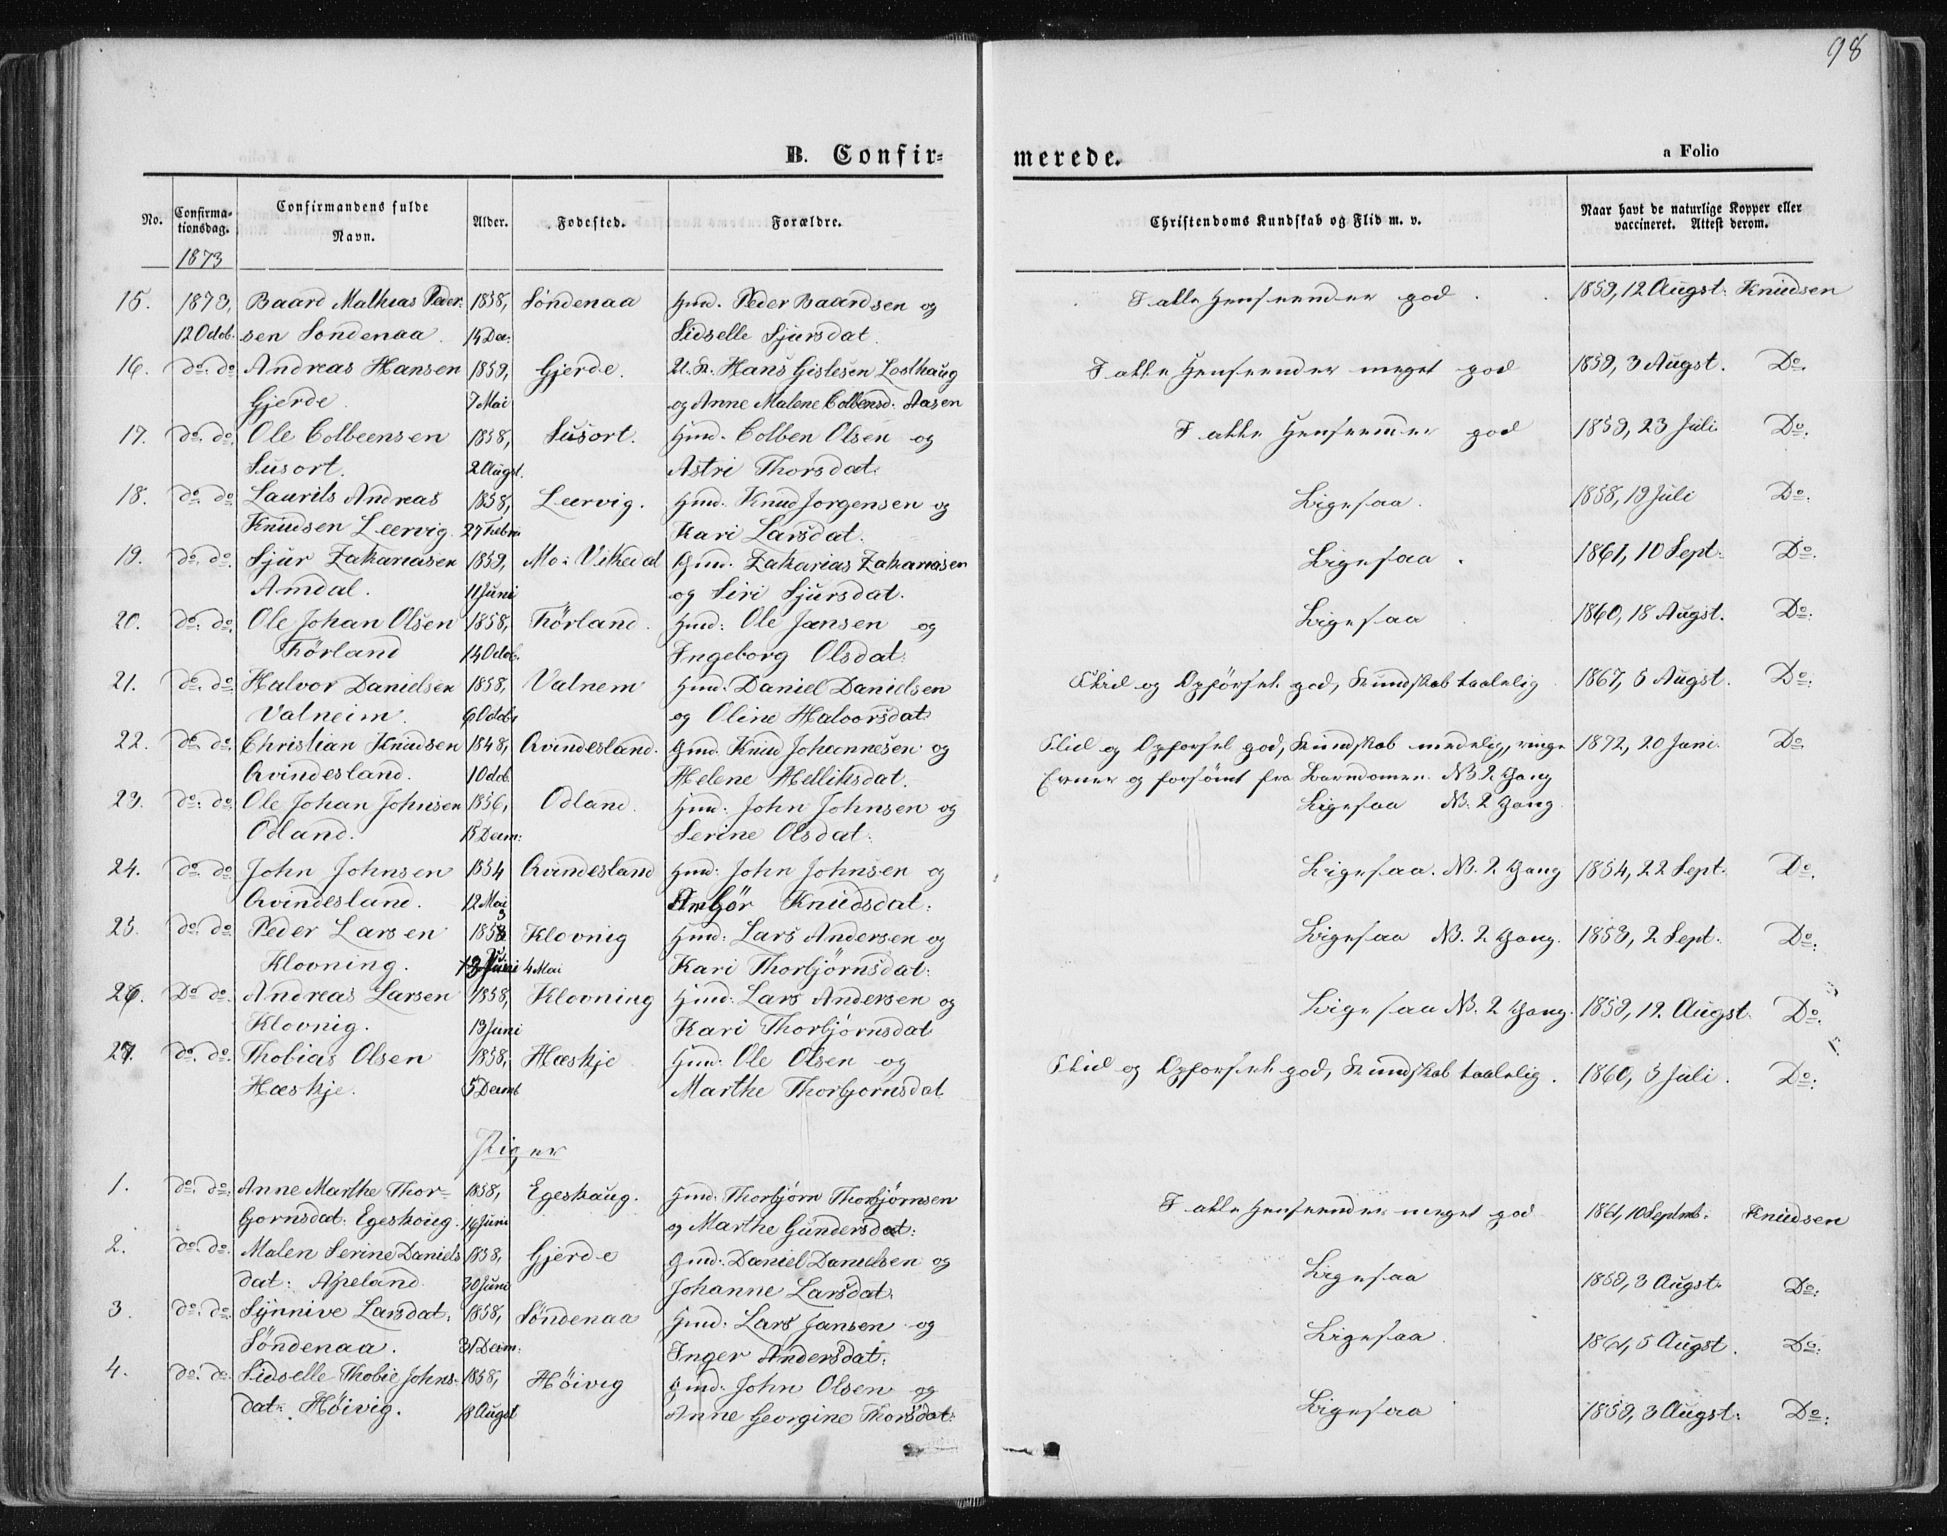 98
B. Confir-
merede.
a Folio
No.
Confirma-
tionsdag.
Confirmandens fulde
Navn.
Alder.
Fødested.
Forældre.
Christendoms Kundskab og Flid m. v.
Naar havt de naturlige Kopper eller
vaccineret. Attest derom.
1873
15. 1873, Baard Mathias Peder- 1858, Söndenaa Gmd. Peder Baardsen og I alle Henseender god 1859, 12 Augst. Knudsen
12 Octob. sen Söndenaa. 14 Dec: Sidselle Sjursdat.
16. do. do Andreas Hansen 1859, Gjerde. U. K. Hans Gislesen Losthaug I alle Henseender meget god 1859, 3 Augst. Do.
Gjerde. 7 Mai og Anne Malene Colbensd. Aasen
17. do. do. Ole Colbeensen 1858, Susort. Gmd. Colben Olsen og I alle Henseender god 1859, 23 Juli Do.
Susort. 2 Augst. Astri Thorsdat.
18. do. do Laurits Andreas 1858, Leervig. Gmd. Knud Jorgensen og Ligesaa. 1858, 19 Juli Do.
Knudsen Leervig. 27 Febru Kari Larsdat.
19. do. do. Sjur Zakariasen 1859, Mo i Vikedal Gmd. Zakarias Zakariasen Ligesaa. 1861, 10 Sept. Do.
Amdal. 11 Juni og Siri Sjursdat.
20. do. do. Ole Johan Olsen 1858, Förland. Gmd: Ole Jansen og Ligesaa 1860, 18 Augst. Do:
Förland 14 Octob. Ingeborg Olsdat.
21. do. do. Halvor Danielsen 1858, Valnem Gmd. Daniel Danielsen Flid og Opførsel god, Kundskab taalelig 1867, 5 Augst. Do:
Valneim. 6 Octobr og Oline Halvorsdat.
22. do. do. Christian Knudsen 1848, Qvindesland. Gmd. Knud Johannesen og Flid og Opforsel god, Kundskab maadelig, ringe 1872, 20 Juni Do
Qvindesland. 1 Octob Helene Helliksdat. Evner og forsömt fra Barndommen. NB 2 Gang
23. do: do. Ole Johan Johnsen 1856, Odland. Gmd: John Johnsen og Ligesaa NB. 2 Gang.
Odland. 15 Decm: Serine Olsdat.
24. do. do John Johnsen 1854 Qvindesland Gmd: John Johnsen og Ligesaa. NB. 2 Gang 1854, 22 Sept. Do.
Qvindesland. 12 Mai Anbjör Knudsdat.
25. do. do. Peder Larsen 1853 Klovnig Gmd: Lars Andersen og Ligesaa NB. 2 Gang. 1853, 2 Sept. Do:
Klovning. 4 Mai Kari Thorbjörnsdat:
26. Do do. Andreas Larsen 1858, Klovning Gmd: Lars Andersen og Ligesaa NB. 2 Gang. 1859, 12. Augst. Do:
Klovnig. 13 Juni Kari Thorbjörnsdat
27. do. do. Thobias Olsen 1858, Hæskje Gmd: Ole Olsen og Flid og Opforsel god, Kundskab taalelig. 1860, 3 Juli. Do:
Hæskje. 5 Decmb Marthe Thorbjornsdat.
Piger
1. do. do. Anne Marthe Thor- 1858, Egeskaug. Gmd: Thorbjörn Thorbjörnsen I alle Henseender meget god 1861, 10 Septmb. Knudsen
bjornsdat: Egeskoug. 16 Juni og Marthe Gundersdat:
2. do. do. Malen Serine Daniels 1858, Gjerde Gmd: Daniel Danielsen og Ligesaa 1859, 3 Augst. Do:
dat: Apeland. 30 Juni Johanne Larsdat.
3. do. do: Synnive Larsdat. 1858, Söndenaa Gmd: Lars Jansen og Ligesaa 1861, 5 Augst. Do:
Söndenaa. 31 Decm: Inger Andersdat.
4. do. do. Sidselle Thobie Johns- 1858, Höivig Gmd: John Olsen og Ligesaa 1859, 3 Augst: Do:
dat: Höivig. 18 Augst Anne Georgine Thorsdat.